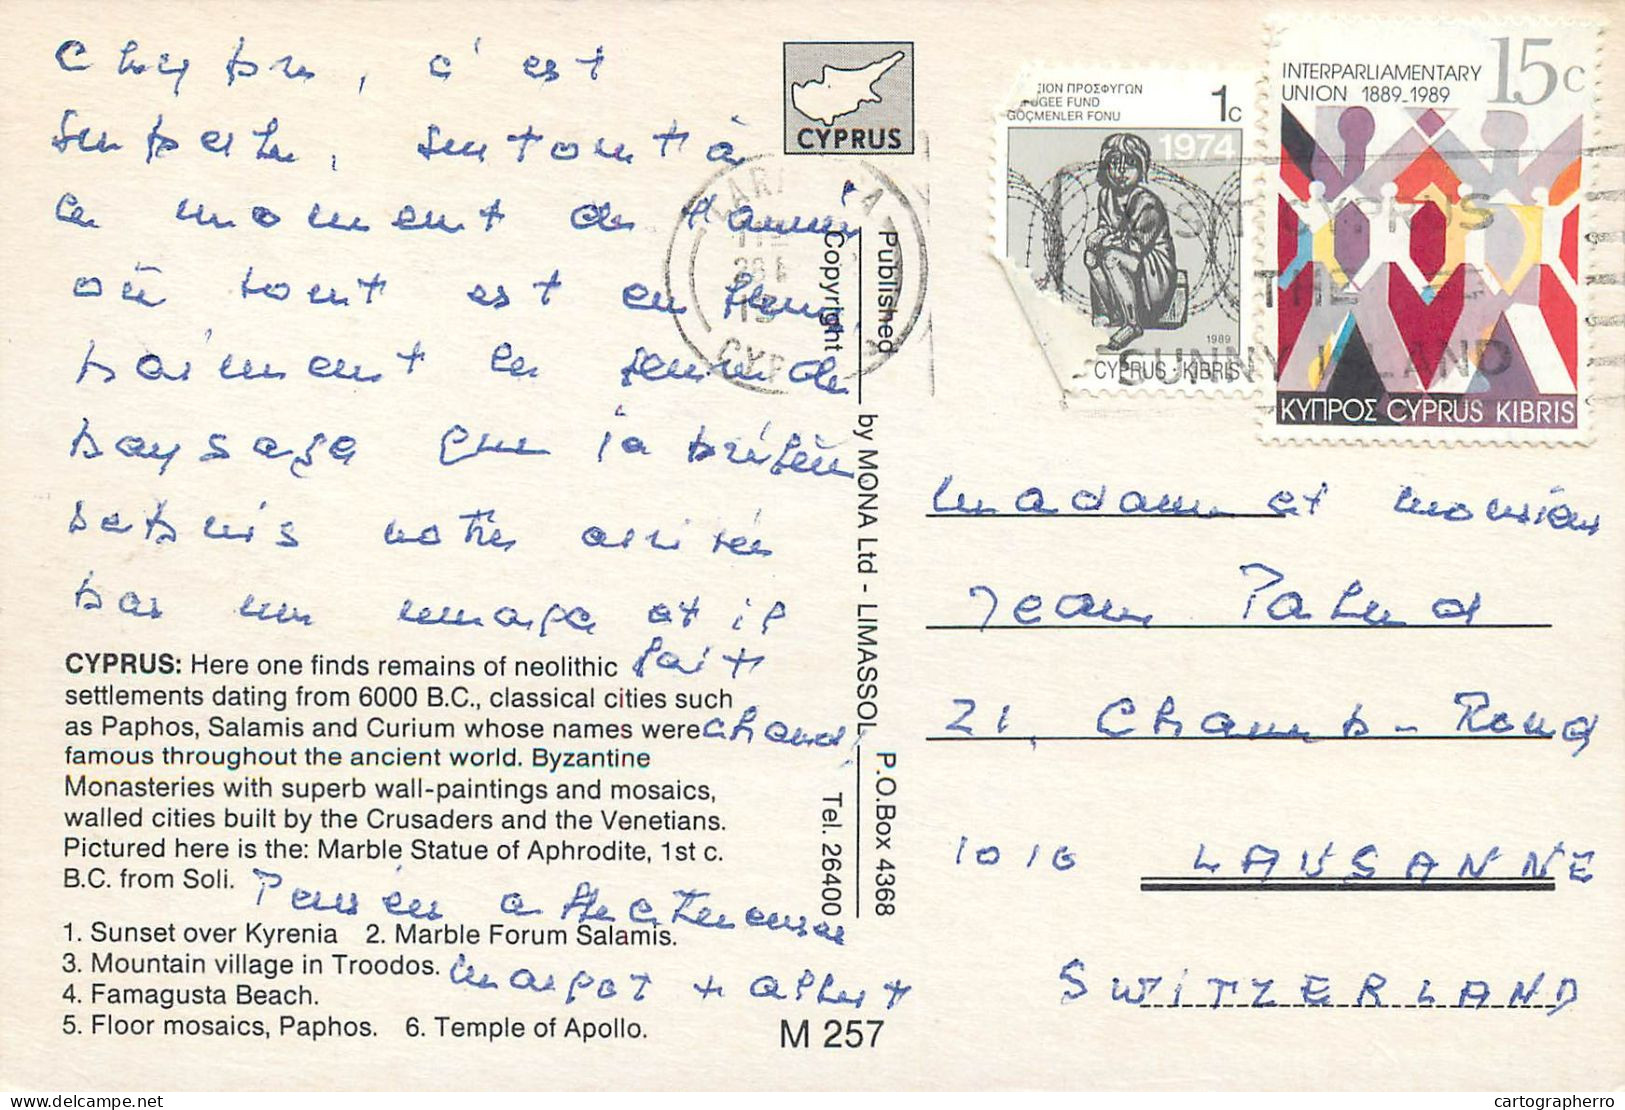 Chypre, c'est
superbe, surtout à
ce moment de l'année
où tout est en fleurs,
vraiment
paysage que j'a préfère
depuis notre arrivée
pas un nuage et il
fait
chaud,
Pensées affectueuses
Margot + Albert
CYPRUS
CYPRUS: Here one finds remains of neolithic
settlements dating from 6000 B.C., classical cities such
as Paphos, Salamis and Curium whose names were
famous throughout the ancient world. Byzantine
Monasteries with superb wall-paintings and mosaics,
walled cities built by the Crusaders and the Venetians.
Pictured here is the: Marble Statue of Aphrodite, 1st c.
B.C. from Soli.
1. Sunset over Kyrenia 2. Marble Forum Salamis.
3. Mountain village in Troodos.
4. Famagusta Beach.
5. Floor mosaics, Paphos. 6. Temple of Apollo.
M 257
Published by MONA Ltd - LIMASSOL P.O.Box 4368
Copyright Tel. 26400
ΠΡΟΣΦΥΓΩΝ
FUND
GÖÇMENLER FONU
1c
1974
1989
CYPRUS · KIBRIS
INTERPARLIAMENTARY
UNION 1889-1989
15c
ΚΥΠΡΟΣ CYPRUS KIBRIS
CYPRUS
THE
SUNNY
Madame et Monsieur
Jean Pahud
21, Champ-Rond
1010 LAUSANNE
SWITZERLAND
delcampe.net
cartographerro